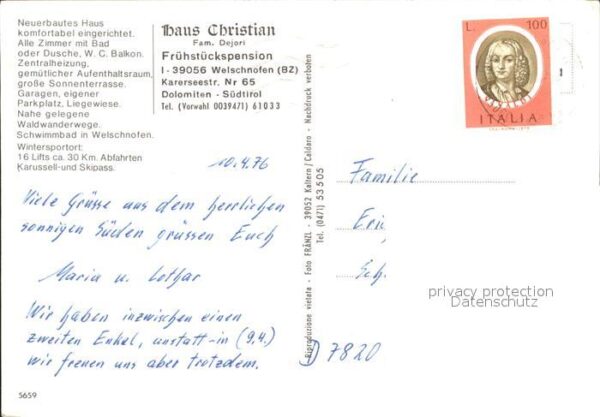 Neuerbautes Haus
komfortabel eingerichtet.
Alle Zimmer mit Bad
oder Dusche, W. C. Balkon.
Zentralheizung,
gemütlicher Aufenthaltsraum,
große Sonnenterrasse.
Garagen, eigener
Parkplatz, Liegewiese.
Nahe gelegene
Waldwanderwege.
Schwimmbad in Welschnofen.
Wintersportort:
16 Lifts ca. 30 Km. Abfahrten
Karussell-und Skipass.
Haus Christian
Fam. Dejori
Frühstückspension
I - 39056 Welschnofen (BZ)
Karerseestr. Nr 65
Dolomiten - Südtirol
Tel. (Vorwahl 0039471) 61033
10.4.76
Viele Grüsse aus dem herrlichen
sonnigen Süden grüssen Euch
Maria u. Lothar
Wir haben inzwischen einen
zweiten Enkel, anstatt-in (9,4.)
wir freuen uns aber trotzdem.
5659
Riproduzione vietata - Foto FRÄNZL - 39052 Kaltern / Caldaro - Nachdruck verboten
Tel. (0471) 53505
L. 100
ITALIA
Familie
Eri
Sch.
D 7820
privacy protection
Datenschutz